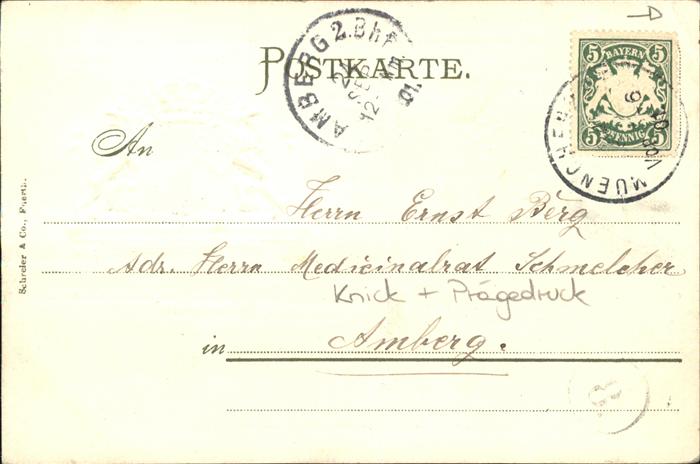 POSTKARTE.
AMBERG 2. Bhf.
5 BAYERN 5
5 PFENNIG 5
MUENCHEN
An
Herrn Ernst Berg
Adr. Herrn Medicinalrat Schmelcher
Knick + Prägedruck
in Amberg.
Schreier & Co., Fuerth.